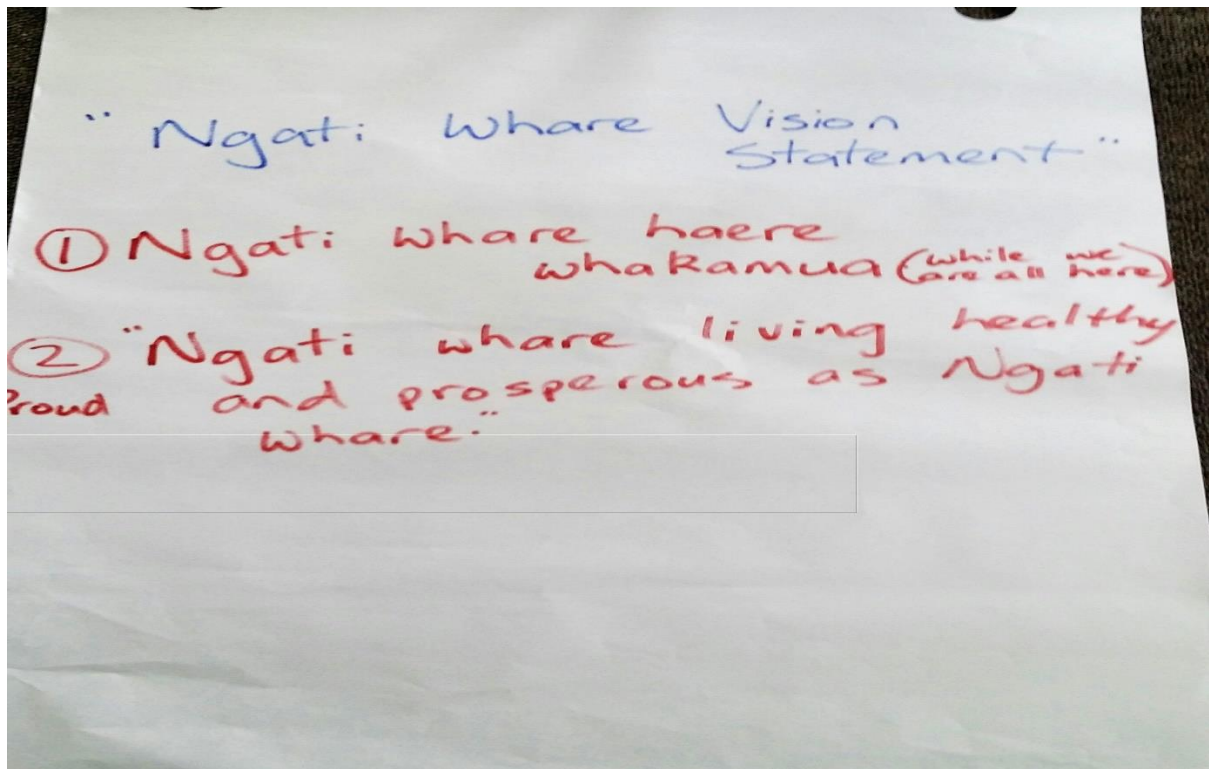 " Ngati Whare Vision
Statement "
① Ngati whare haere
whakamua (while we
are all here)
② "Ngati whare living healthy
Proud and prosperous as Ngati
whare."